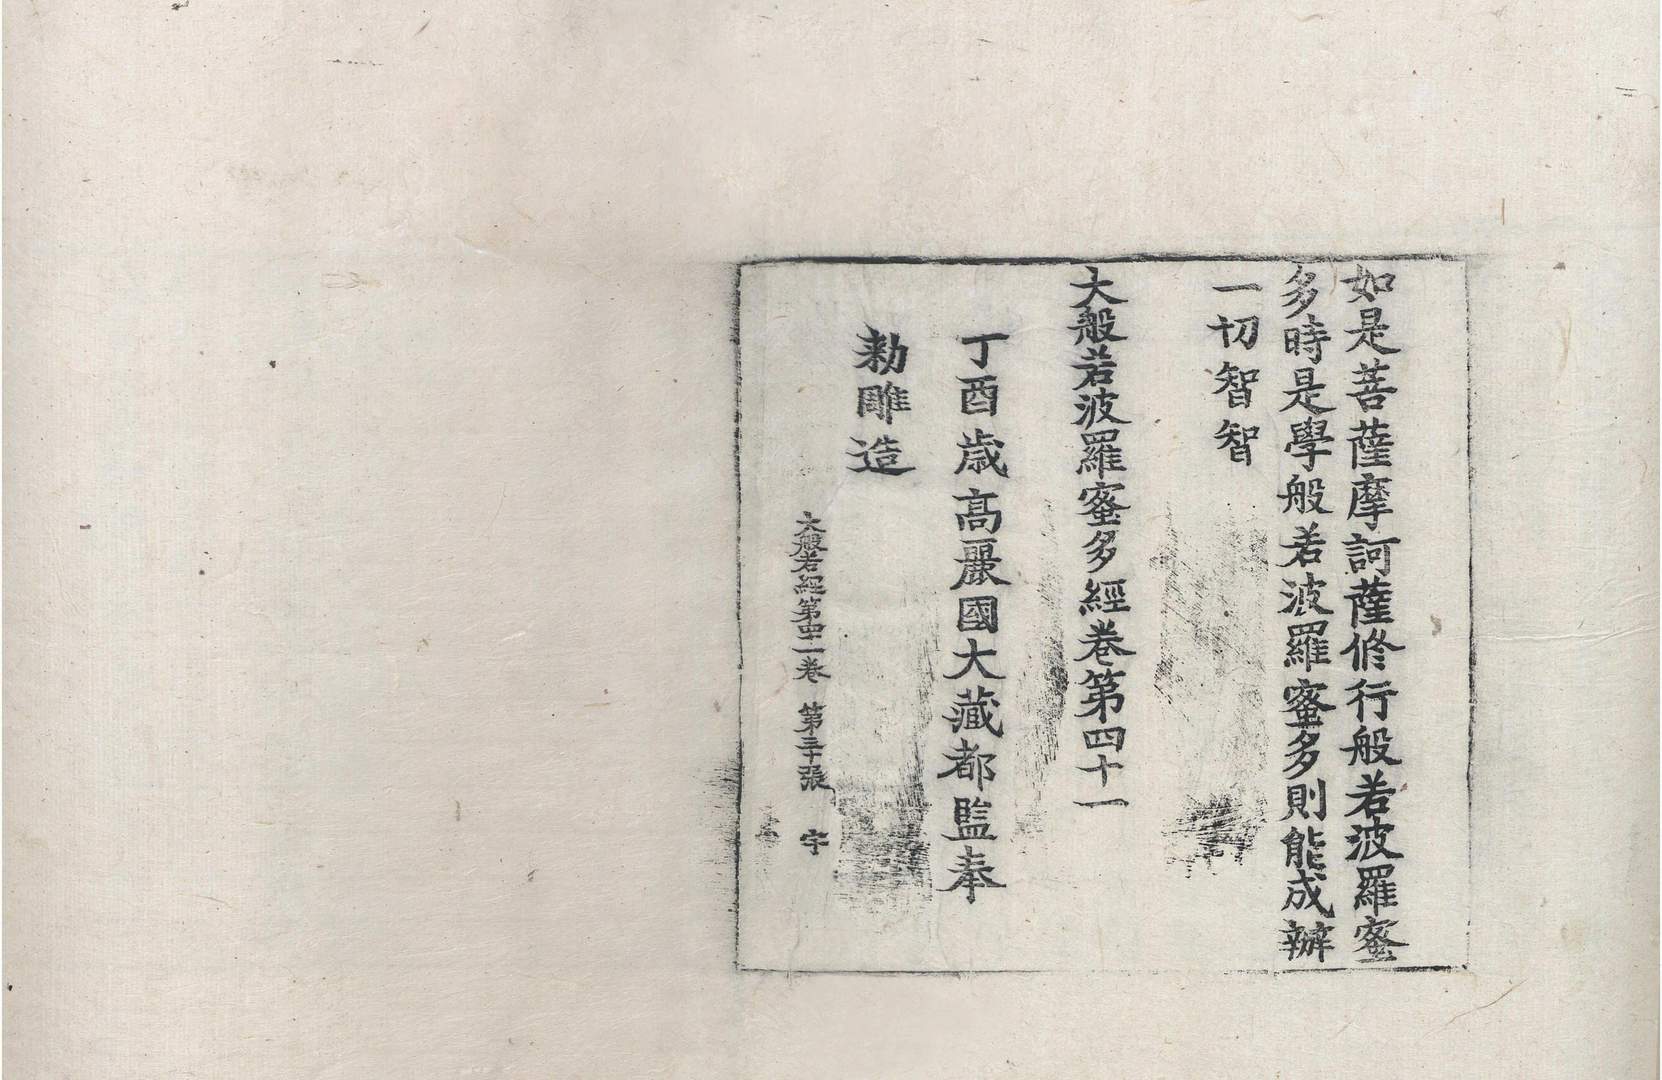 如是菩薩摩訶薩修行般若波羅蜜
多時是學般若波羅蜜多則能成辦
一切智智
大般若波羅蜜多經卷第四十一
丁酉歲高麗國大藏都監奉
勑雕造
大般若經第四十一卷 第二十張 宇